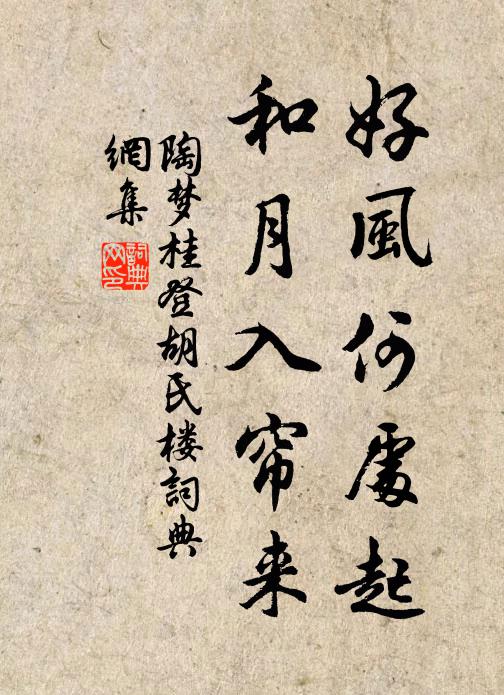 好風何處起
和月入帘来
陶梦桂登胡氏楼詞典
網集
詞典网印